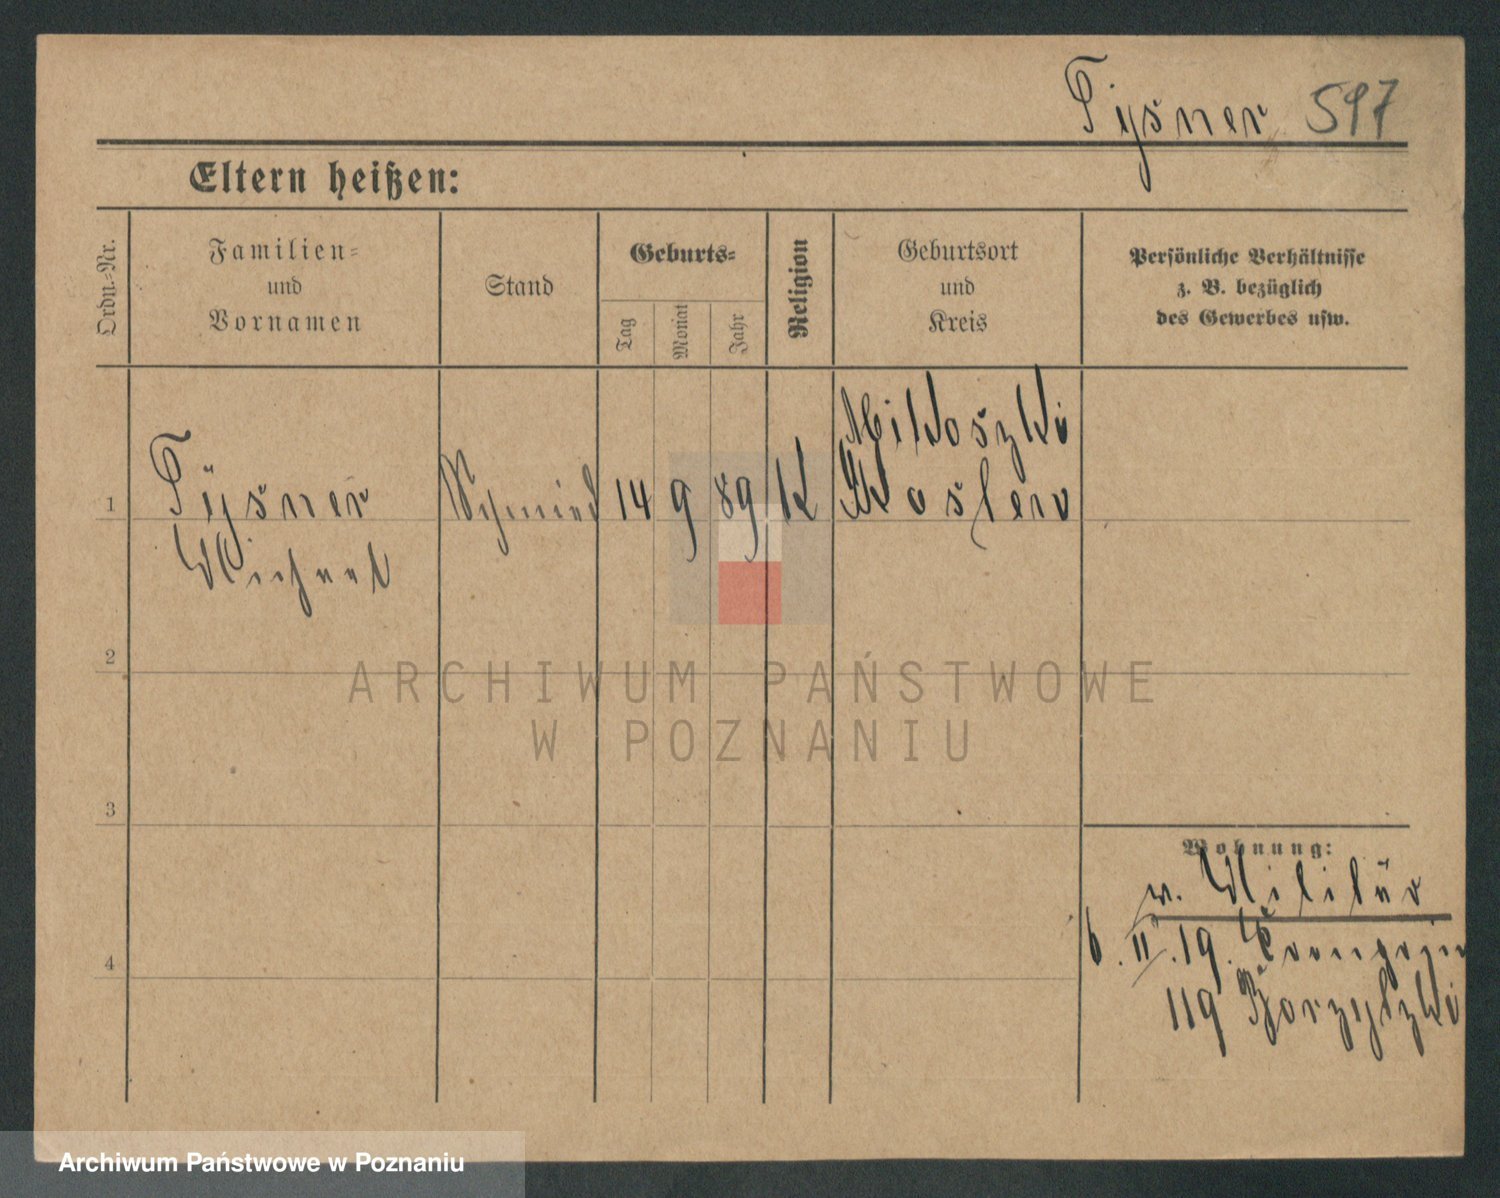 Tysner 597
Eltern heißen:
Ordn.-Nr.
Familien-
und
Vornamen
Stand
Geburts-
Tag
Monat
Jahr
Religion
Geburtsort
und
Kreis
Persönliche Verhältnisse
z. B. bezüglich
des Gewerbes usw.
1
Tÿsner
Michael
Schmied
14
9
89
K
Mikoszki
Koslew
2
3
4
Wohnung:
v. Militär
6. II. 19.
119
ARCHIWUM PAŃSTWOWE
W POZNANIU
Archiwum Państwowe w Poznaniu